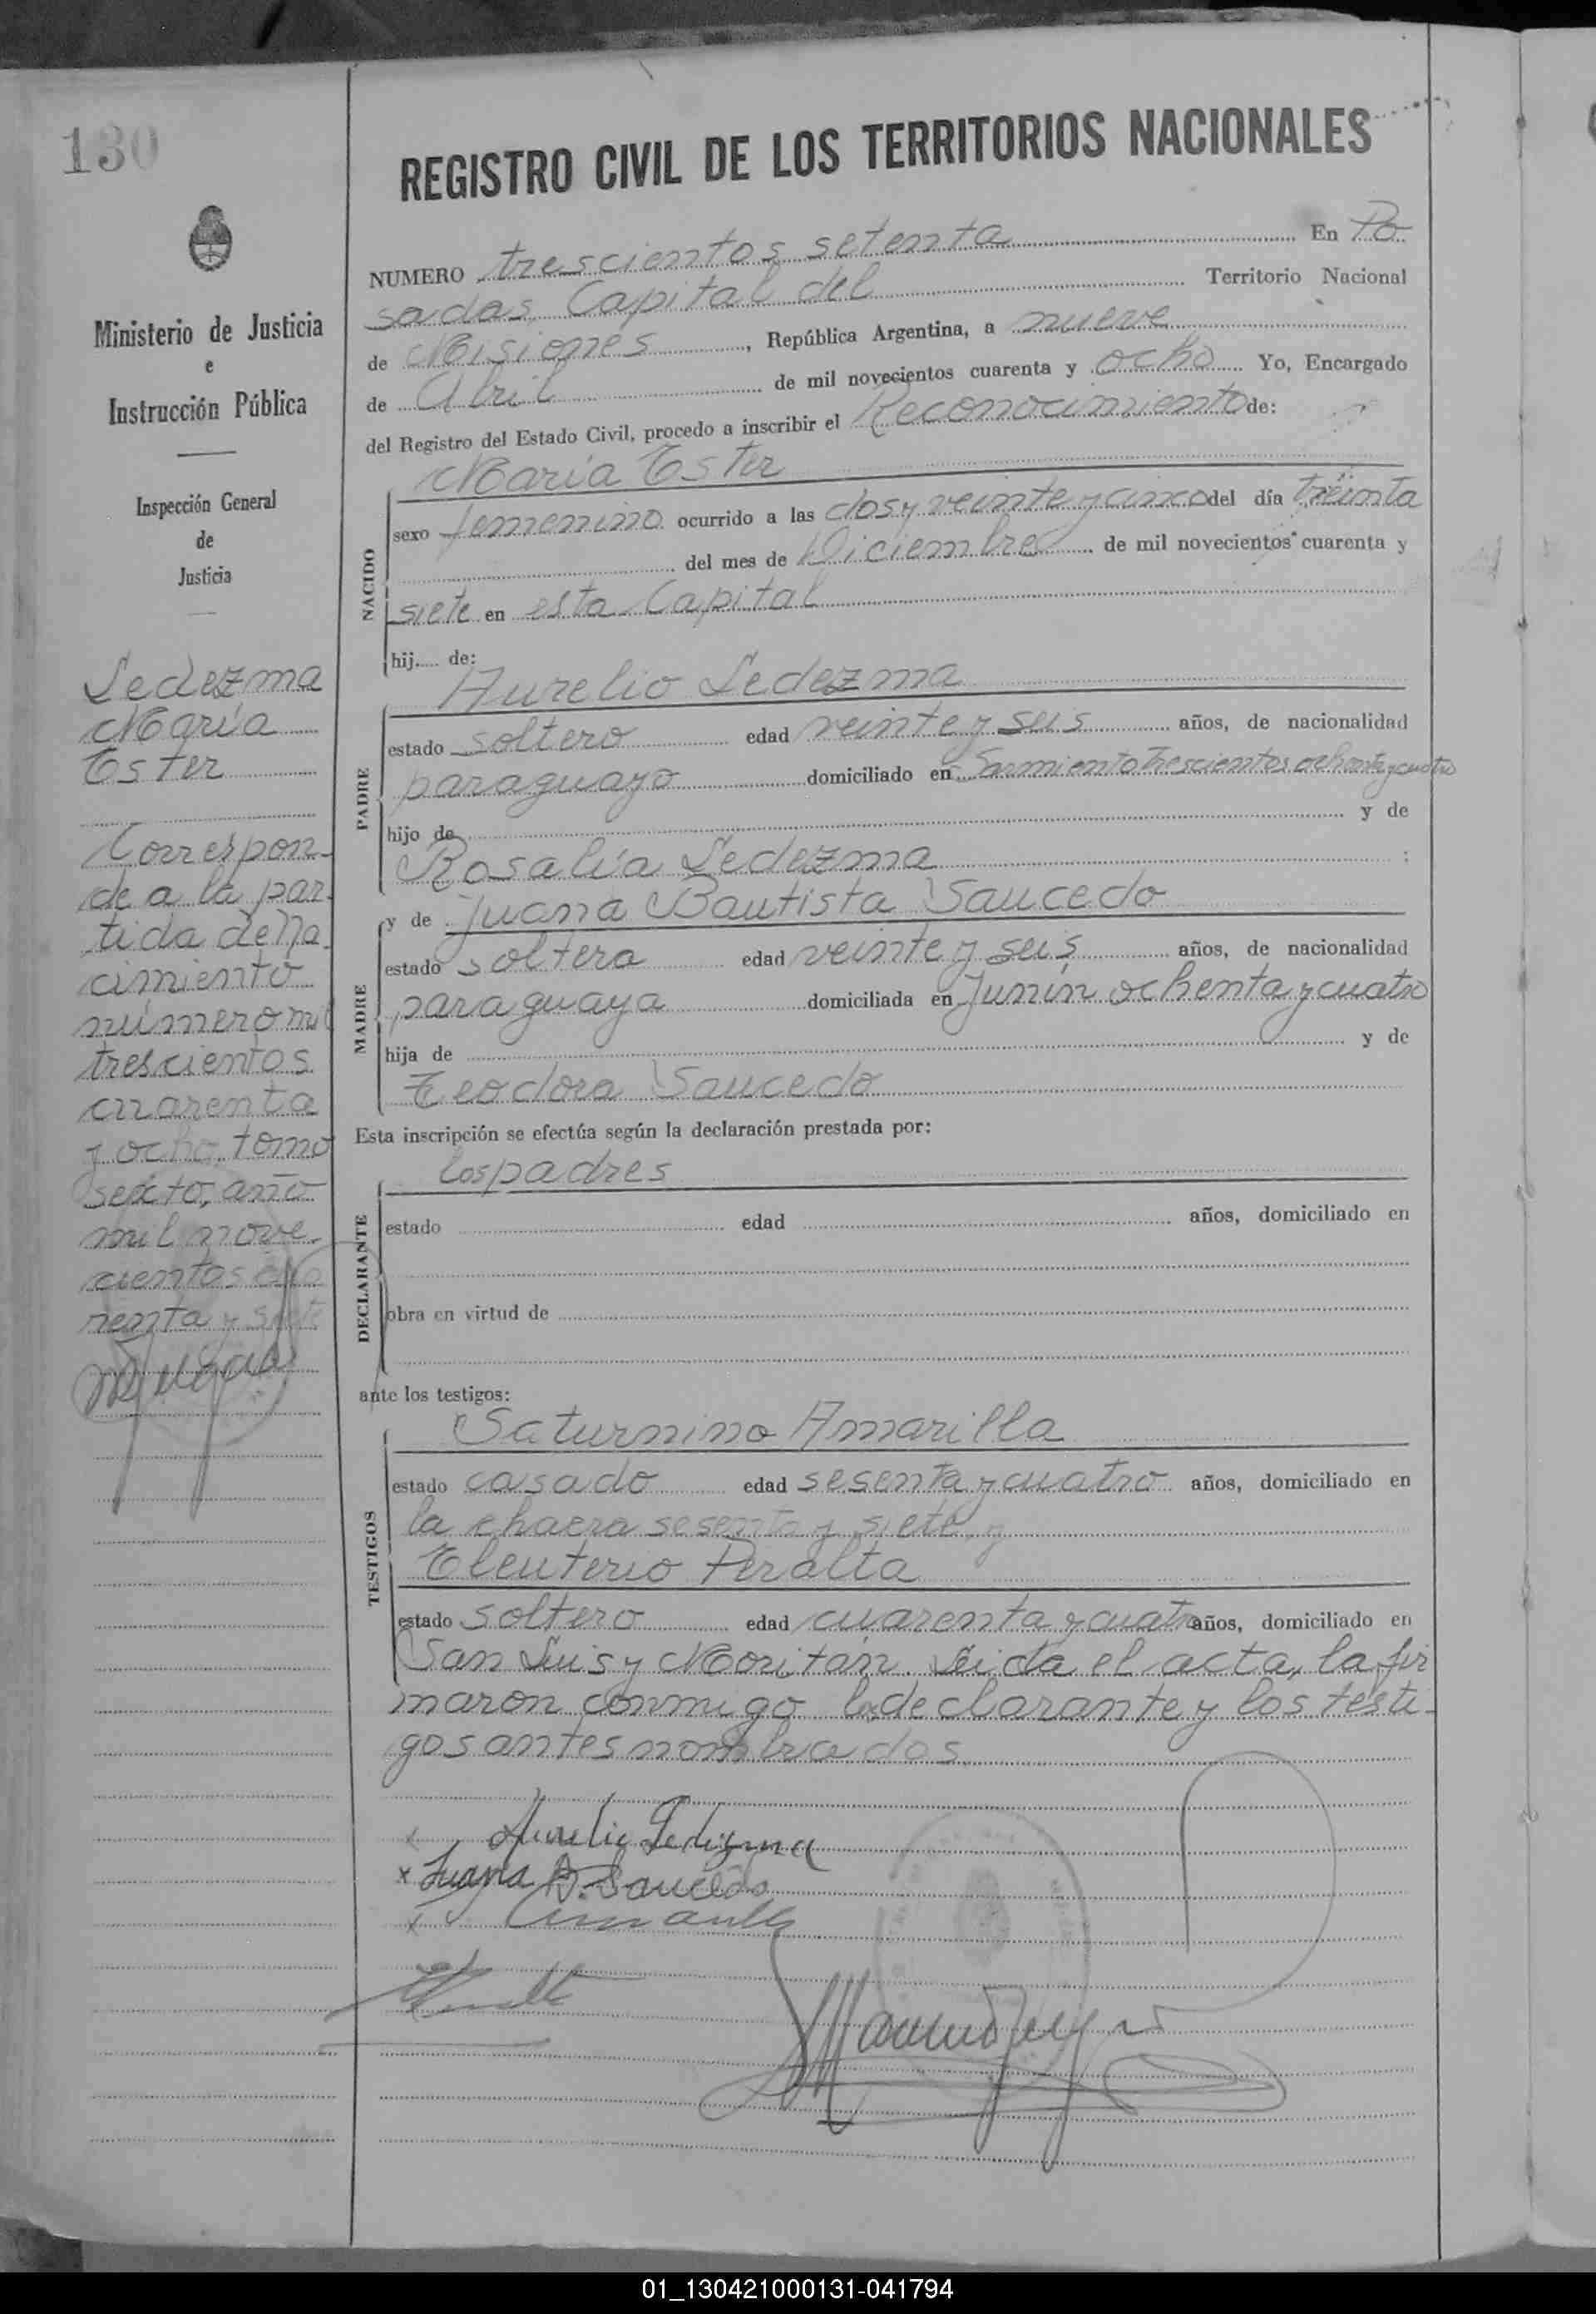 130
Ministerio de Justicia
e
Instrucción Pública
Inspección General
de
Justicia
Ledezma
María
Ester
Correspon-
de a la par-
tida de Na-
cimiento
número mil
trescientos
cuarenta
y ocho, tomo
sexto, año
mil nove-
cientos cua
renta y siete
REGISTRO CIVIL DE LOS TERRITORIOS NACIONALES
NUMERO trescientos setenta En Po
sadas, Capital del Territorio Nacional
de Misiones, República Argentina, a nueve
de Abril de mil novecientos cuarenta y ocho Yo, Encargado
del Registro del Estado Civil, procedo a inscribir el Reconocimiento de:
María Ester
NACIDO
sexo femenino ocurrido a las dos y veinte y cinco del día treinta
del mes de Diciembre de mil novecientos cuarenta y
siete en esta Capital
hij..... de:
Aurelio Ledezma
PADRE
estado soltero edad veinte y seis años, de nacionalidad
paraguayo domiciliado en Sarmiento trescientos ochenta y cuatro
hijo de y de
Rosalía Ledezma :
y de Juana Bautista Saucedo
MADRE
estado soltera edad veinte y seis años, de nacionalidad
paraguaya domiciliada en Junín ochenta y cuatro
hija de y de
Teodora Saucedo
Esta inscripción se efectúa según la declaración prestada por:
los padres
DECLARANTE
estado edad años, domiciliado en
obra en virtud de
ante los testigos:
Saturnino Amarilla
TESTIGOS
estado casado edad sesenta y cuatro años, domiciliado en
la chacra sesenta y siete, y
Eleuterio Peralta
estado soltero edad cuarenta y cuatro años, domiciliado en
San Luis y Moritán. Leída el acta, la fir
maron conmigo los declarante y los testi-
gos antes nombrados
x Aurelio Ledezma
x Juana B. Saucedo
x
01_130421000131-041794